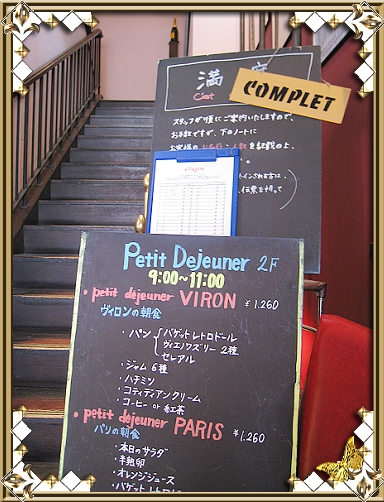 満席
C'est
COMPLET
スタッフが順にご案内いたしますので、
お手数ですが、下のノートに
お客様のお名前・人数を記載の上、
Viron
Petit Dejeuner 2F
9:00~11:00
・petit déjeuner VIRON ¥1.260
ヴィロンの朝食
・パン バゲットレトロドール
ヴィエノワズリー 2種
セレアル
・ジャム 6種
・ハチミツ
・コティディアンクリーム
・コーヒー or 紅茶
・petit déjeuner PARIS ¥1.260
パリの朝食
・本日のサラダ
・半熟卵
・オレンジジュース
・バゲットレトロド